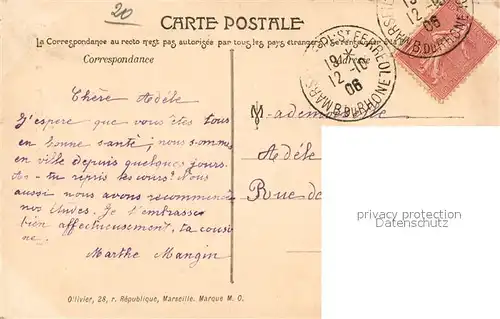 20
CARTE POSTALE
La Correspondance au recto n'est pas autorisée par tous les pays étrangers
Correspondance
Adresse
19 *
12 -10
06
MARS
B. DU RHONE
12
06
B. DU RHONE
Chère Adèle
J'espère que vous êtes tous
en bonne santé, nous sommes
en ville depuis quelques jours.
As-tu repris les cours? Nous
aussi nous avons recommencé
nos études. Je t'embrasse
bien affectueusement, ta cousi
ne.
Marthe Mangin
Mademoiselle
Adèle
Rue de
privacy protection
Datenschutz
Ollivier, 28, r. République, Marseille. Marque M. O.